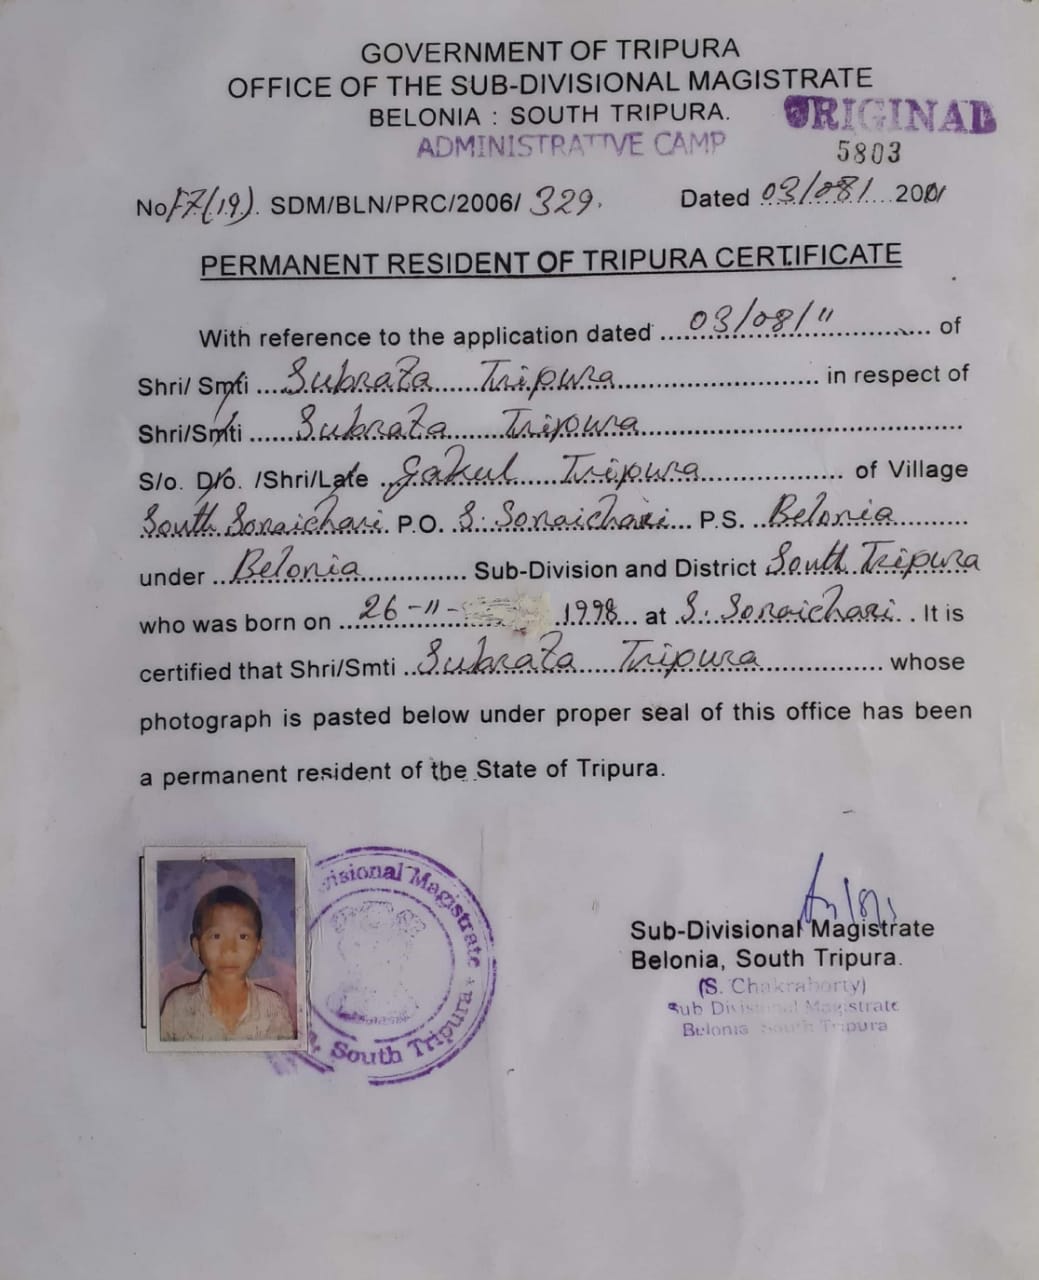 GOVERNMENT OF TRIPURA
OFFICE OF THE SUB-DIVISIONAL MAGISTRATE
BELONIA : SOUTH TRIPURA.
ORIGINAL
ADMINISTRATIVE CAMP
5803
No F7(19). SDM/BLN/PRC/2006/ 329. Dated 03/08/ 2011
PERMANENT RESIDENT OF TRIPURA CERTIFICATE
With reference to the application dated 03/08/11 of
Shri/ Smti Subrata Tripura in respect of
Shri/Smti Subrata Tripura
S/o. D/o. /Shri/Late Gakul Tripura of Village
South Sonaichari P.O. S. Sonaichari P.S. Belonia
under Belonia Sub-Division and District South Tripura
who was born on 26-11- 1998 at S. Sonaichari. It is
certified that Shri/Smti Subrata Tripura whose
photograph is pasted below under proper seal of this office has been
a permanent resident of the State of Tripura.
visional Magistrate
South Tripura
Sub-Divisional Magistrate
Belonia, South Tripura.
(S. Chakraborty)
Sub Divisional Magistrate
Belonia South Tripura